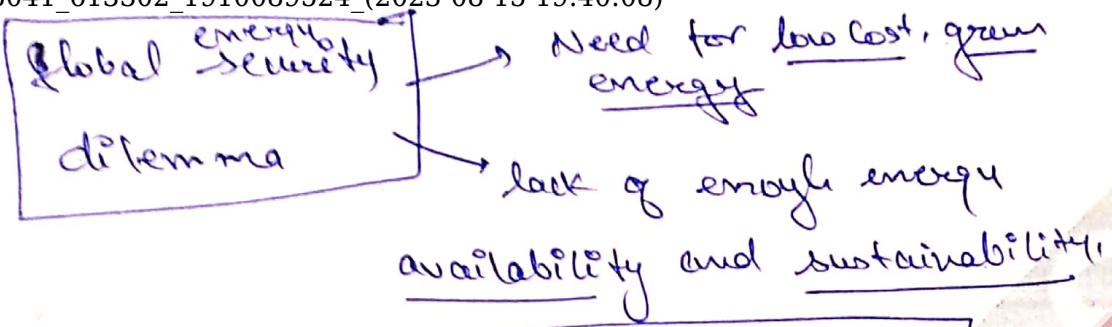 Global energy security
dilemma
Need for low cost, green
energy
lack of enough energy
availability and sustainability.
(2023-08-15 19:40:08)